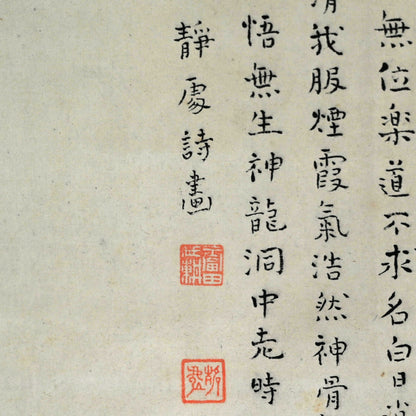 無位楽道不求名白日
我服煙霞氣浩然神骨
悟無生神龍洞中走時
靜處詩畫